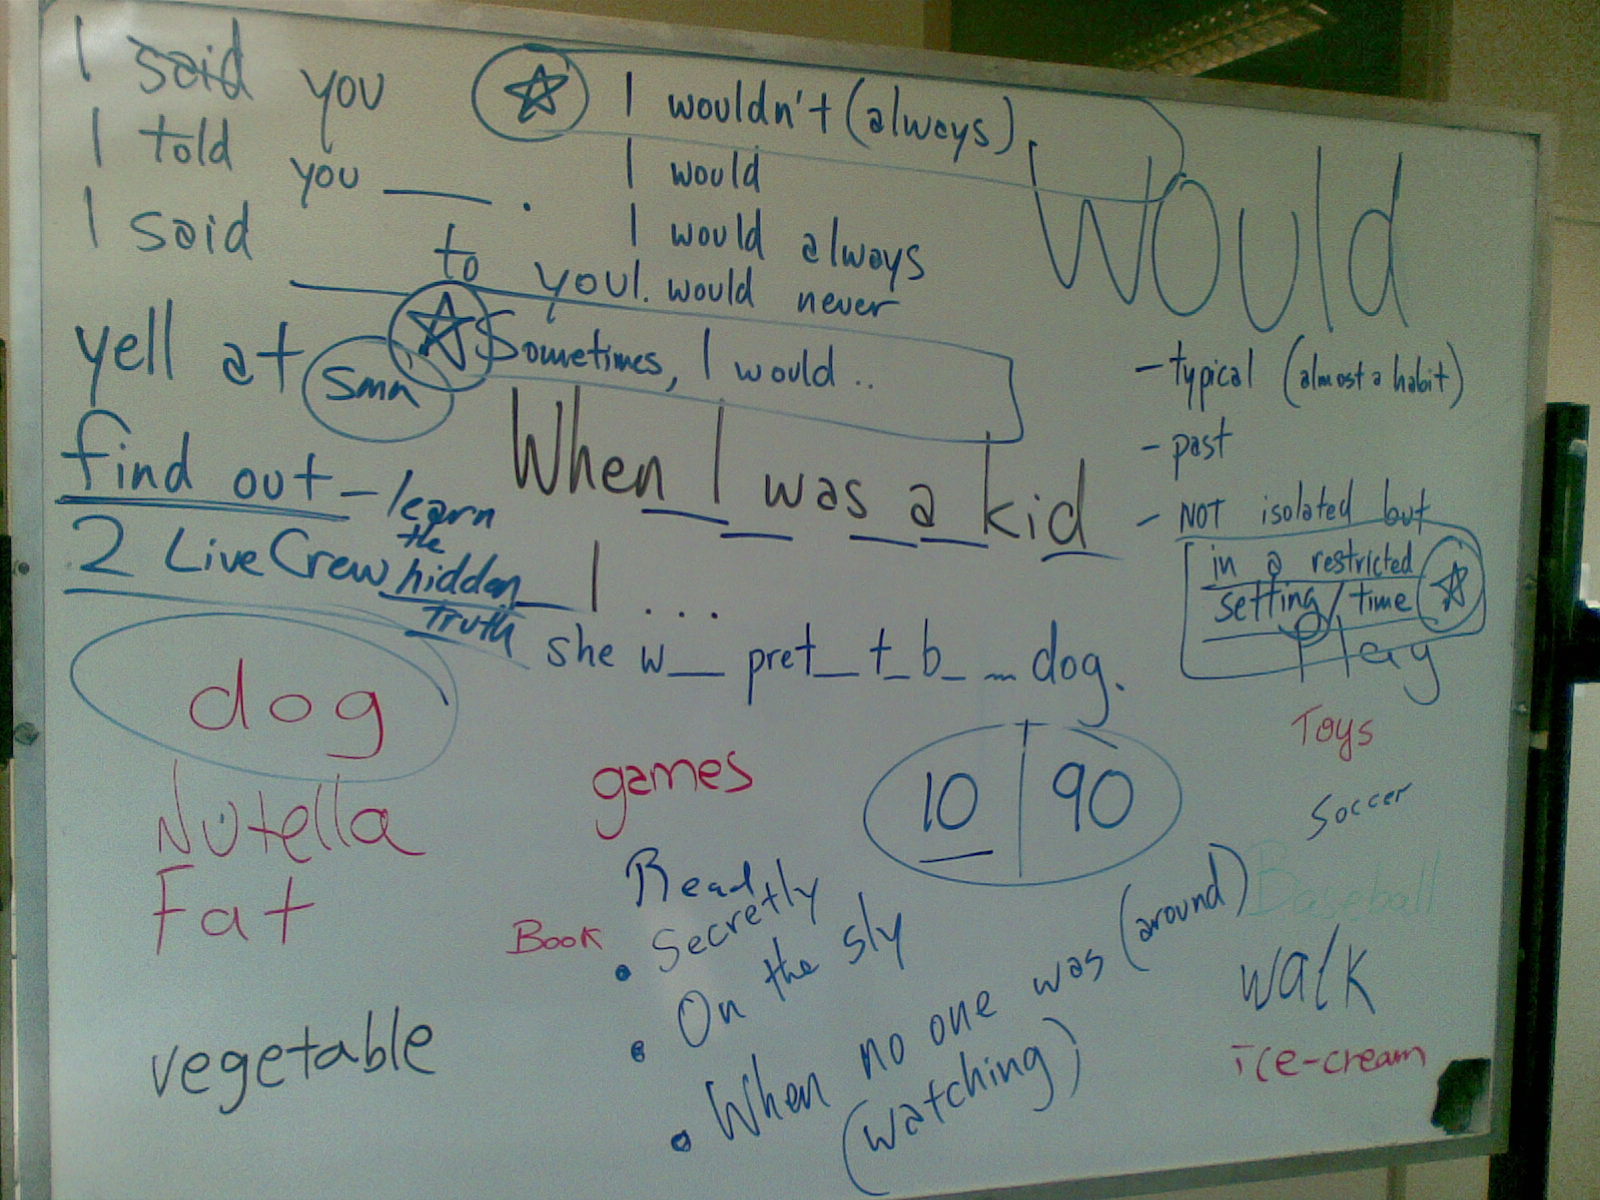 I said you
I told you ___.
I said ___ to you.
yell at smn
find out - learn
the
hidden
truth
2 Live Crew
I wouldn't (always)
I would
I would always
I would never
Sometimes, I would ..
When I was a kid
I ...
she w__ pret_ t_ b_ _ dog.
Would
- typical (almost a habit)
- past
- NOT isolated but
in a restricted
setting/time
Play
dog
Nutella
Fat
vegetable
games
Book
10 | 90
Read
• Secretly
• On the sly
• When no one was (around)
(watching)
Toys
Soccer
Baseball
walk
ice-cream